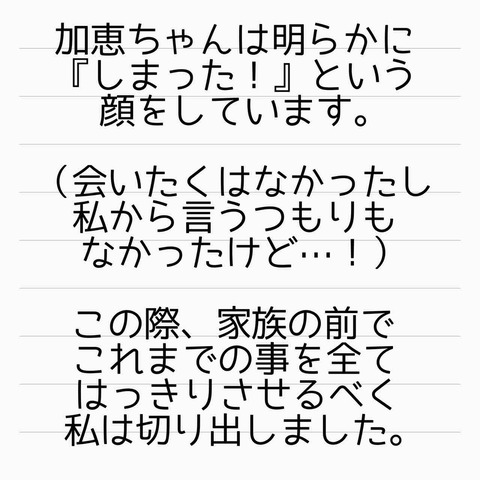 加恵ちゃんは明らかに
『しまった！』という
顔をしています。
（会いたくはなかったし
私から言うつもりも
なかったけど…！）
この際、家族の前で
これまでの事を全て
はっきりさせるべく
私は切り出しました。